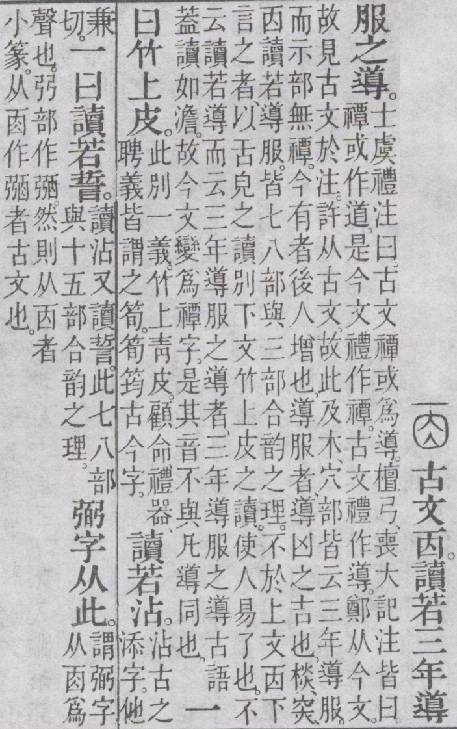 古文㐁。讀若三年導
服之導。
士虞禮注曰。古文禫或爲導。檀弓、喪大記注皆曰。
禫或作道。是今文禮作禫。古文禮作導。鄭从今文。
故見古文於注。許从古文。故此及木、穴部皆云三年導服。
而示部無禫。今有者後人增也。導服者、導凶之吉也。棪、突、
㐁讀若導服。皆七八部與三部合韵之理。不於上文㐁下
言之者、以舌皃之讀別下文竹上皮之讀。使人易了也。不
云讀若導而云三年導服之導者、三年導服之導古語
蓋讀如澹。故今文變爲禫字。是其音不與凡導同也。
一
曰竹上皮。
此別一義。竹上靑皮。顧命、禮器、
聘義皆謂之筍。筍筠古今字。
讀若沾。
沾古之
添字。他
兼
切。
一曰讀若誓。
讀沾又讀誓。此七八部
與十五部合韵之理。
弼字从此。
謂弼字
从㐁爲
聲也。弜部作弻。然則从㐁者
小篆。从㐁作弻者古文也。